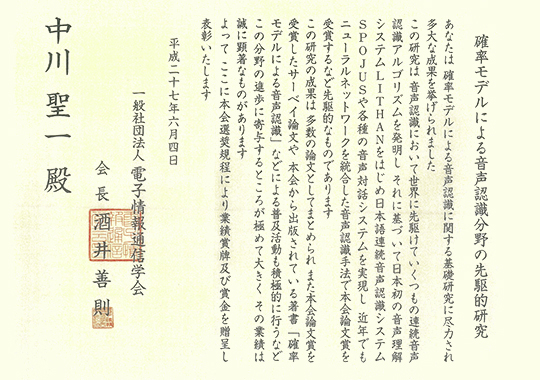 確率モデルによる音声認識分野の先駆的研究
あなたは 確率モデルによる音声認識に関する基礎研究に尽力され
多大な成果を挙げられました
この研究は 音声認識において世界に先駆けていくつもの連続音声
認識アルゴリズムを発明し それに基づいて日本初の音声理解
システムLITHANをはじめ日本語連続音声認識システム
SPOJUSや各種の音声対話システムを実現し 近年でも
ニューラルネットワークを統合した音声認識手法で本会論文賞を
受賞するなど先駆的なものであります
この研究の成果は 多数の論文としてまとめられ また本会論文賞を
受賞したサーベイ論文や 本会から出版されている著書「確率
モデルによる音声認識」などによる普及活動も積極的に行うなど
この分野の進歩に寄与するところが極めて大きく その業績は
誠に顕著なものがあります
よって ここに本会選奨規程により業績賞牌及び賞金を贈呈し
表彰いたします
平成二十七年六月四日
一般社団法人 電子情報通信学会
会長 酒井善則
中川聖一殿